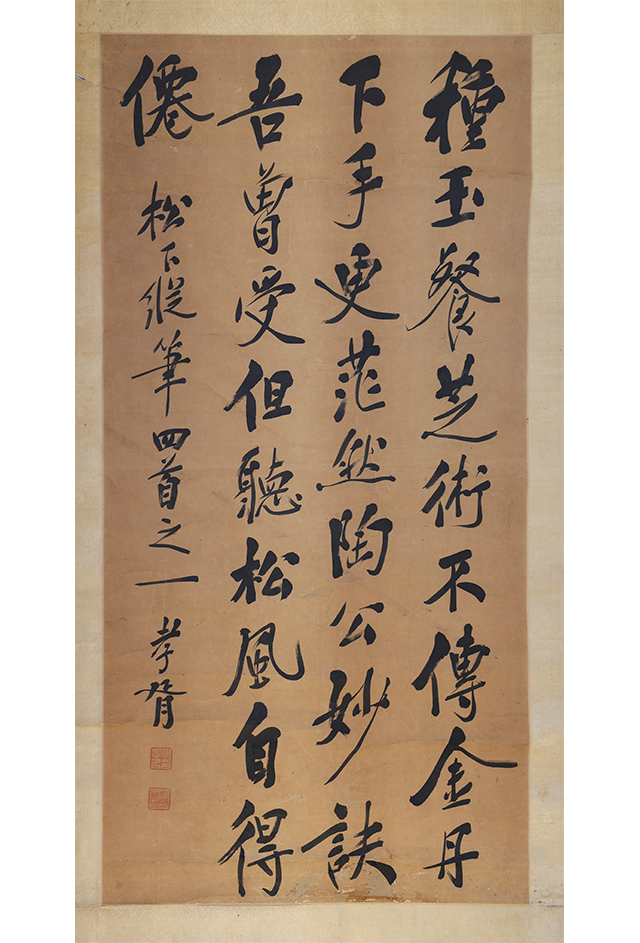 種玉餐芝術不傳金丹
下手更茫然陶公妙訣
吾曾受但聽松風自得
僊 松下縱筆四首之一 孝胥